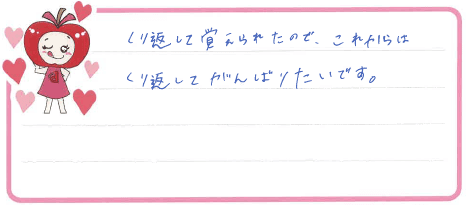 くり返して覚えられたので、これからは
くり返してがんばりたいです。